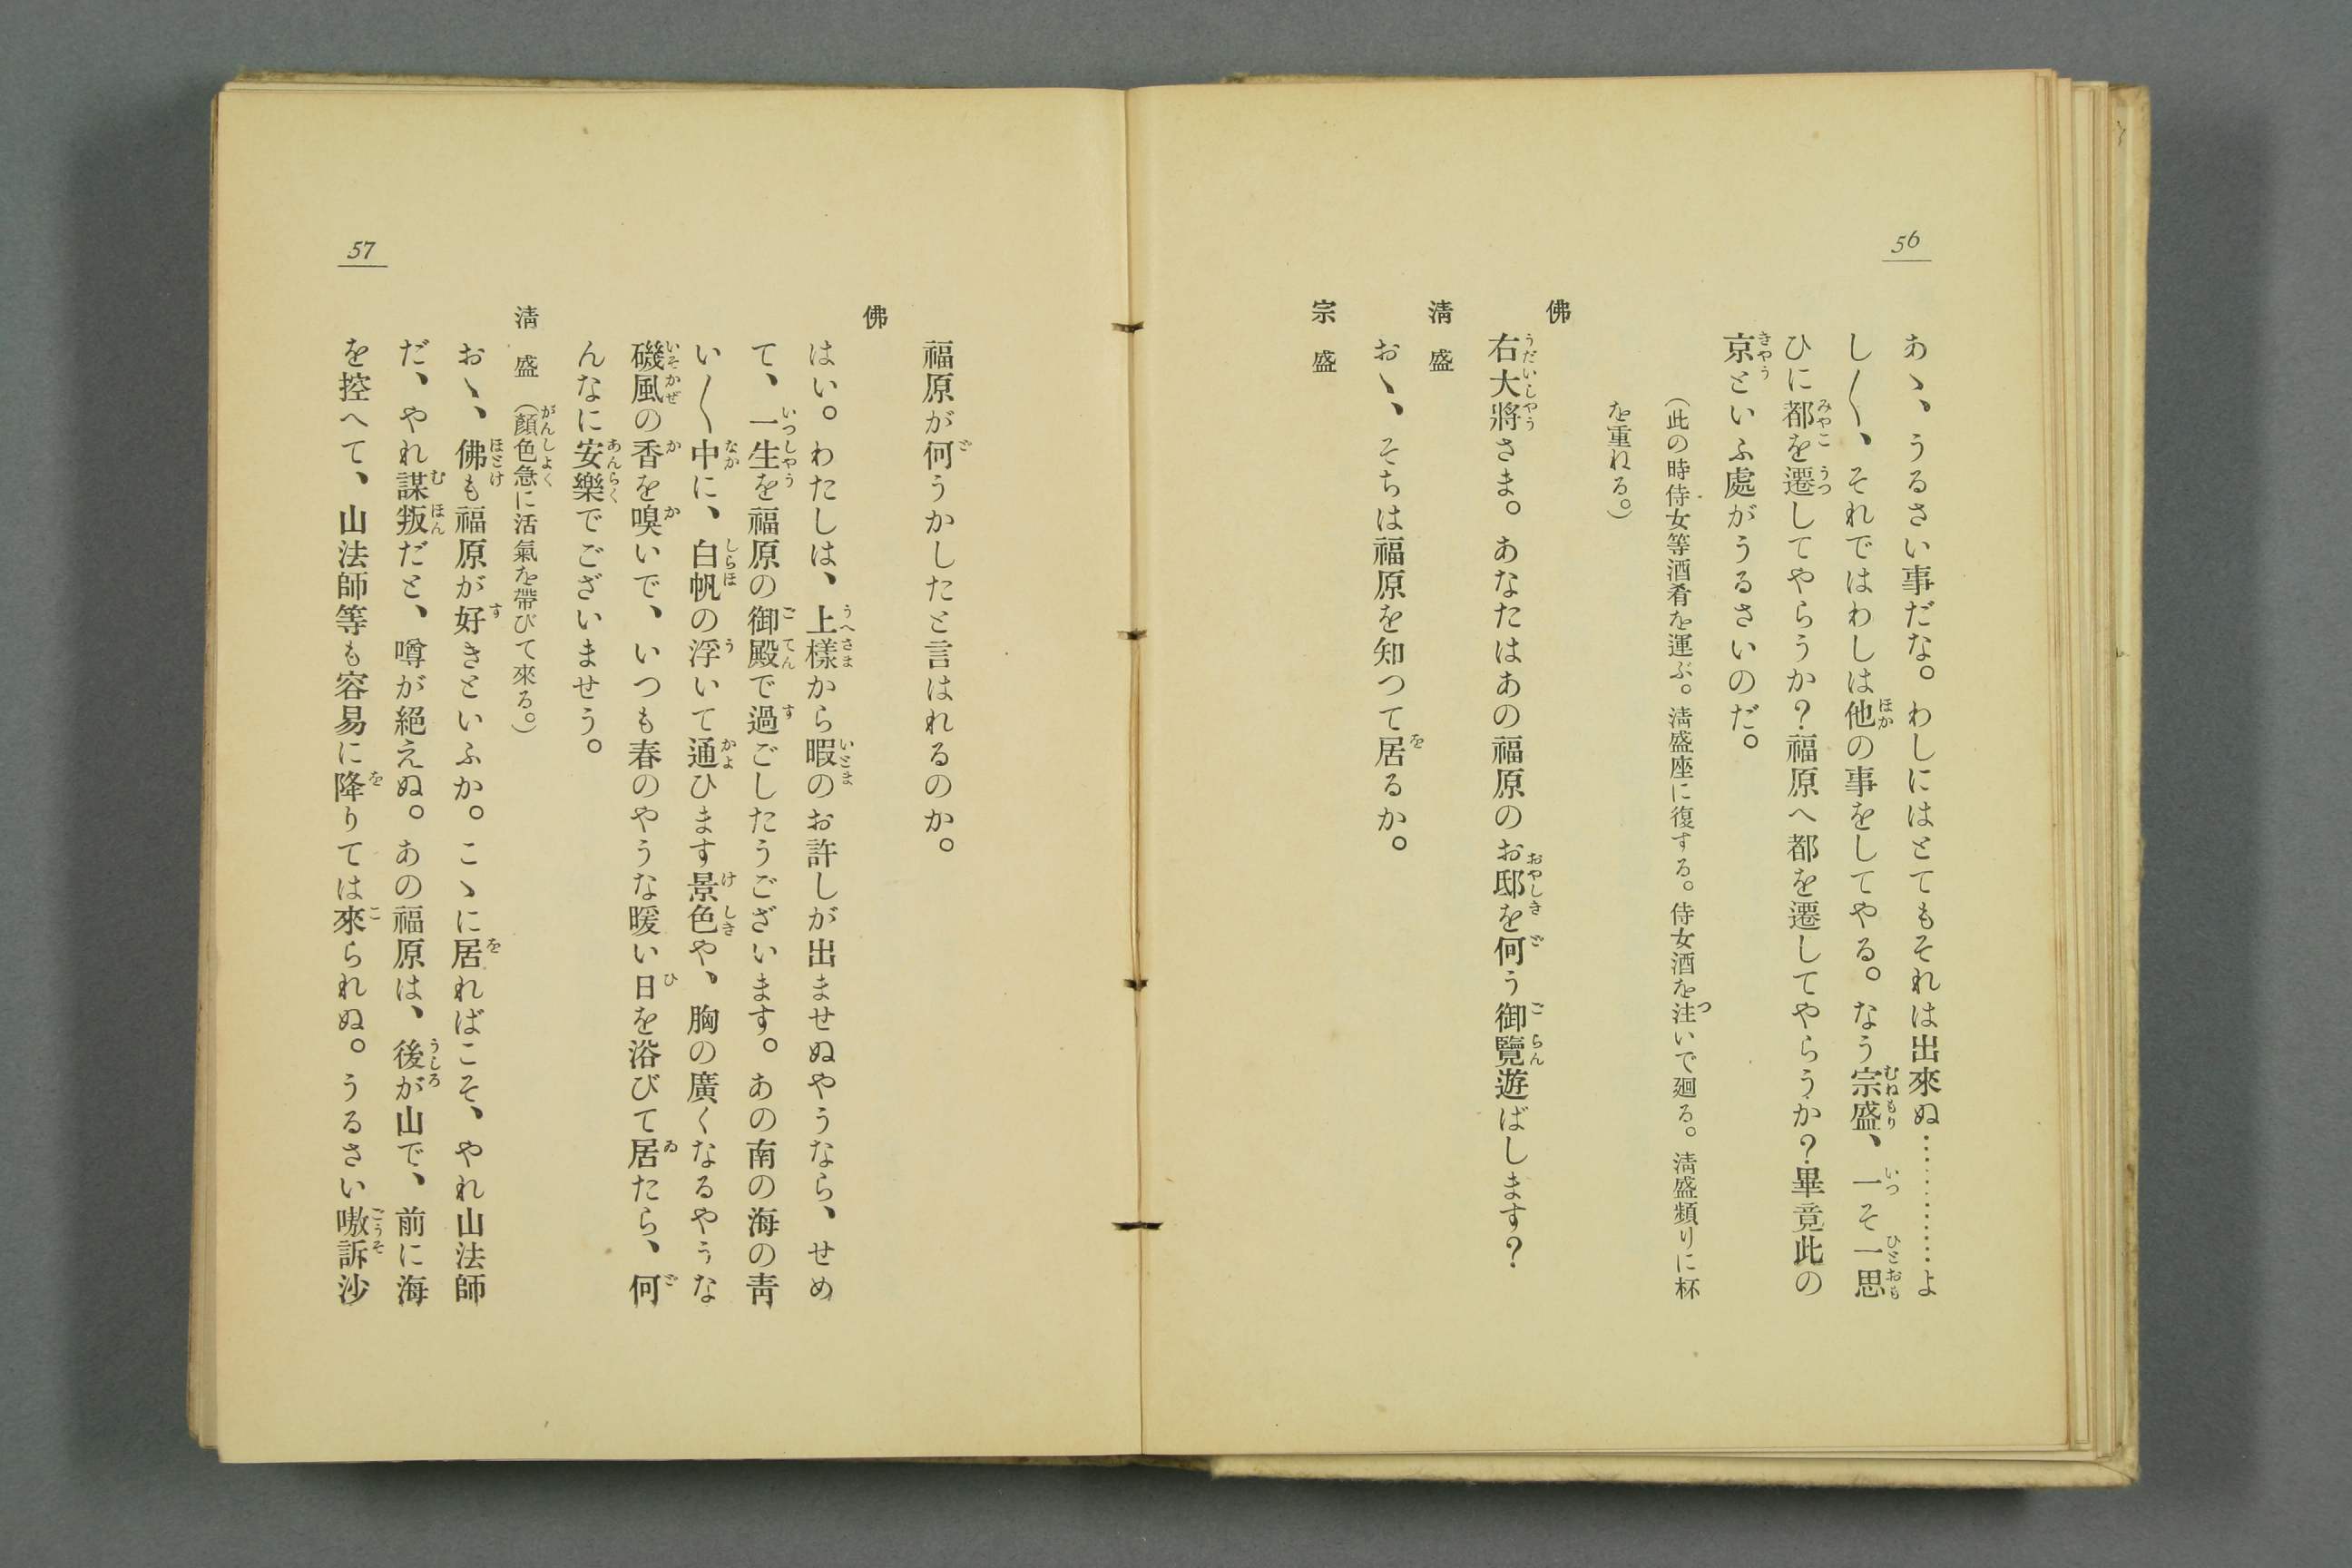 56
あゝ、うるさい事だな。わしにはとてもそれは出來ぬ…………よ
し〳〵、それではわしは他の事をしてやる。なう宗盛、一そ一思
ひに都を遷してやらうか？福原へ都を遷してやらうか？畢竟此の
京といふ處がうるさいのだ。
（此の時侍女等酒肴を運ぶ。淸盛座に復する。侍女酒を注いで廻る。淸盛頻りに杯
を重ねる。）
佛
右大將さま。あなたはあの福原のお邸を何う御覽遊ばします？
淸盛
おゝ、そちは福原を知つて居るか。
宗盛
福原が何うかしたと言はれるのか。
佛
はい。わたしは、上樣から暇のお許しが出ませぬやうなら、せめ
て、一生を福原の御殿で過ごしたうございます。あの南の海の靑
い〳〵中に、白帆の浮いて通ひます景色や、胸の廣くなるやうな
磯風の香を嗅いで、いつも春のやうな暖い日を浴びて居たら、何
んなに安樂でございませう。
淸盛（顏色急に活氣を帶びて來る。）
おゝ、佛も福原が好きといふか。こゝに居ればこそ、やれ山法師
だ、やれ謀叛だと、噂が絕えぬ。あの福原は、後が山で、前に海
を控へて、山法師等も容易に降りては來られぬ。うるさい嗷訴沙
57